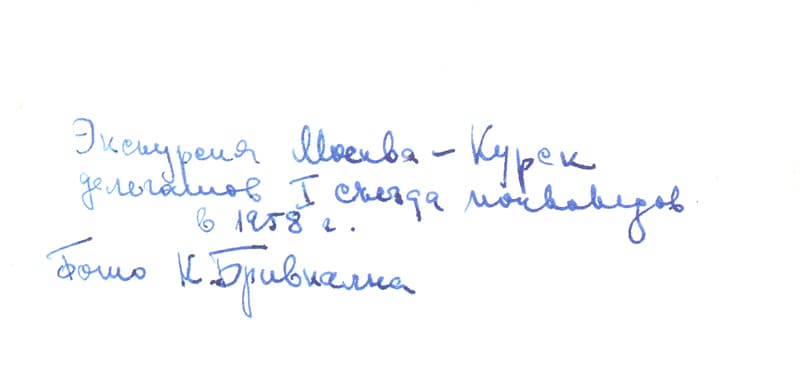 Экскурсия Москва – Курск
делегатов I съезда почвоведов
в 1958 г.
Фото К. Бривкална